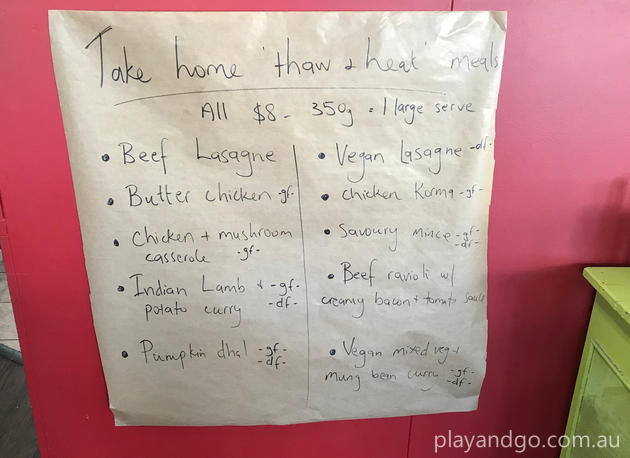 Take home 'thaw & heat' meals
All $8 - 350g = 1 large serve
• Beef Lasagne
• Butter chicken -gf-
• Chicken + mushroom
casserole -gf-
• Indian Lamb + -gf-
potato curry -df-
• Pumpkin dhal -gf-
-df-
• Vegan Lasagne -df-
• chicken Korma -gf-
• Savoury Mince -gf-
-df-
• Beef ravioli w/
creamy bacon + tomato sauce
• Vegan mixed veg +
mung bean curry -gf-
-df-
playandgo.com.au